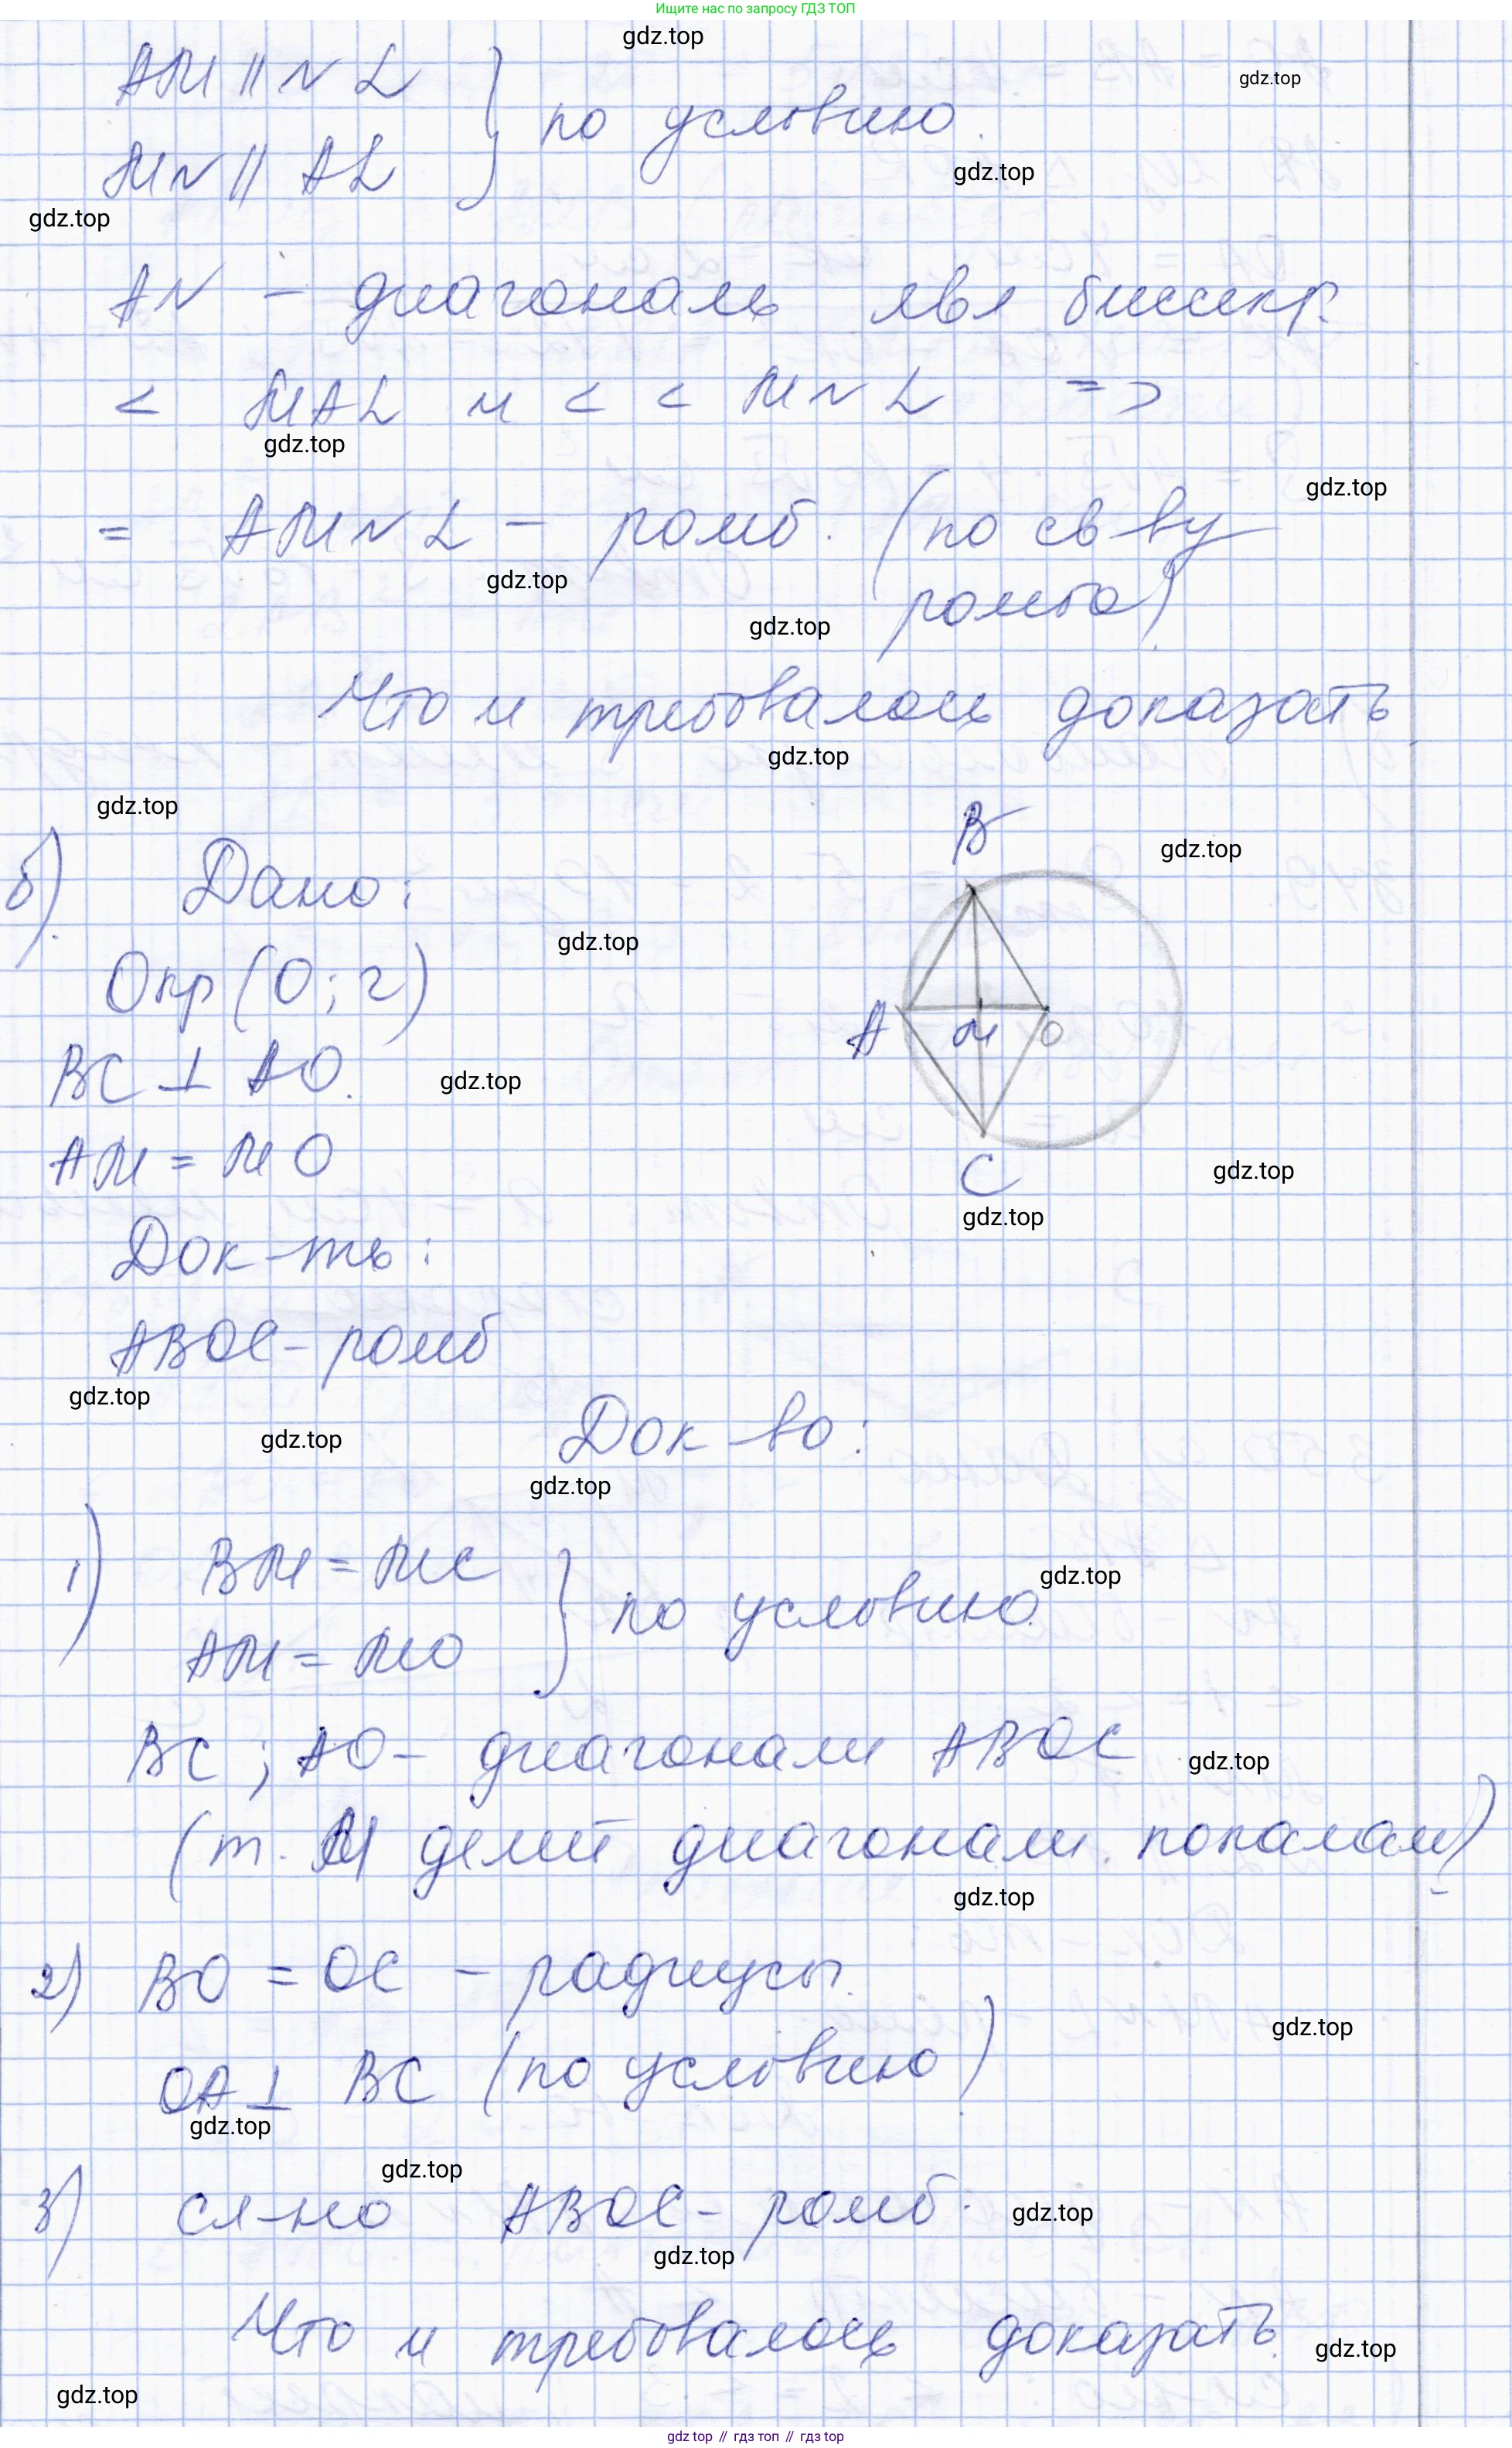 Ищите нас по запросу ГДЗ ТОП
gdz.top
AM || NL
gdz.top
} по условию.
MN || AL
gdz.top
gdz.top
AN - диагональ явл биссектр.
< MAL и < < MNL =>
gdz.top
gdz.top
= AMNL - ромб. (по св-ву
gdz.top
ромба)
gdz.top
Что и требовалось доказать
gdz.top
gdz.top
B
gdz.top
б) Дано:
gdz.top
Окр (O; r)
A M O
BC ⊥ AO.
gdz.top
AM = MO
C
gdz.top
gdz.top
Док-ть:
ABOC - ромб
gdz.top
Док-во:
gdz.top
gdz.top
1) BM = MC
gdz.top
} по условию.
AM = MO
BC ; AO - диагонали ABOC
gdz.top
(т. M делит диагонали попалам)
gdz.top
2) BO = OC - радиусы.
gdz.top
OA ⊥ BC (по условию)
gdz.top
gdz.top
3) сл-но ABOC - ромб.
gdz.top
gdz.top
Что и требовалось доказать.
gdz.top
gdz.top
gdz.top // гдз топ // gdz.top